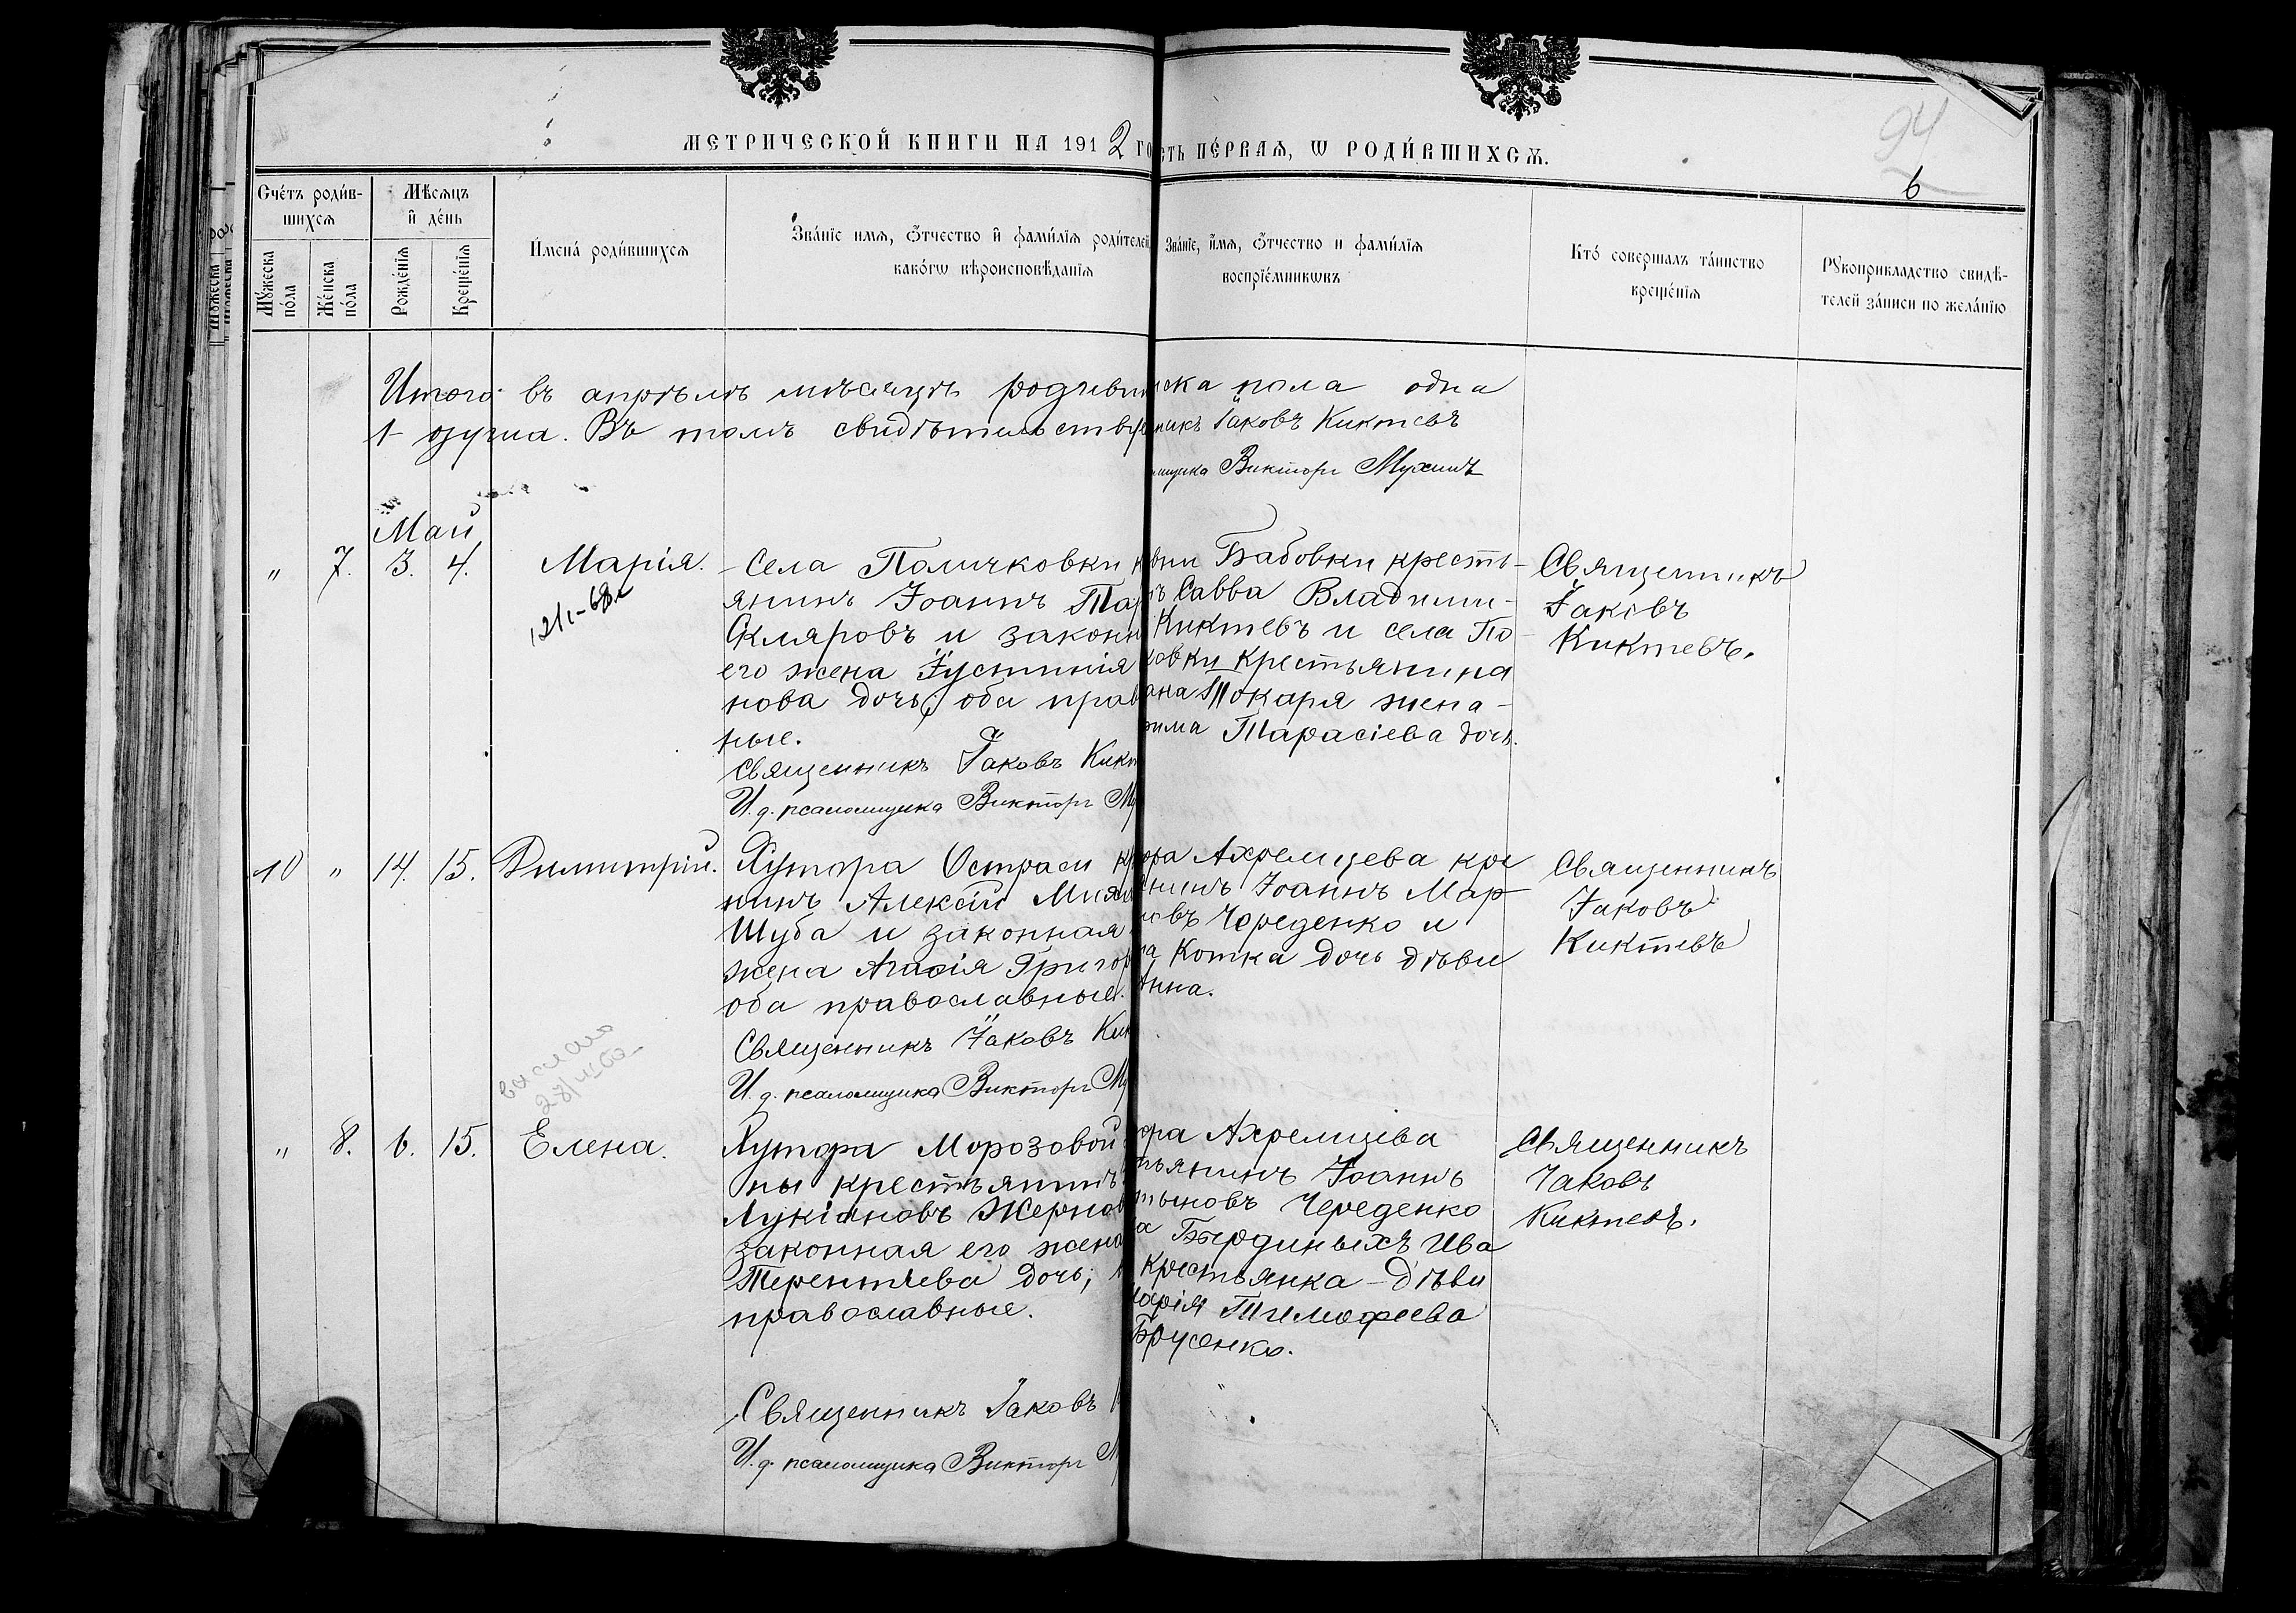 МЕТРИЧЕСКОЙ КНИГИ НА 1912 ГО
СТЬ ПЕ́РВАЯ, Ѡ РОДИ́ВШИХСѦ.
94
6
Сче́тъ роди́в-
шихсѧ
Мѣсѧцъ
и҆ де́нь
Мꙋ́жеска по́ла
Же́нска по́ла
Рожде́нїѧ
Креще́нїѧ
И҆мена́ роди́вшихсѧ
Зва́нїе имѧ, ѻ҆́тчество и҆ фами́лїѧ роди́телей
како́гѡ вѣроисповѣ́данїѧ
Зва́нїе, и҆́мѧ, ѻ҆́тчество и фами́лїѧ
воспрїе́мникѡвъ
Кто́ соверша́лъ та́инство
креще́нїѧ
Рꙋкоприкладство свидѣ-
телей за́писи по жела́нїю
Итого въ апрѣлѣ мѣсяцѣ родивш
ска пола одна
1- душа. Въ томъ свидѣтельств
никъ Іаковъ Киктевъ
мщика Викторъ Мухинъ
Май
" 7. 3. 4. Марія.
12/I-68г
Села Поличковки к
янинъ Іоаннъ Тар
Скляровъ и законн
его жена Іустинія
нова дочь, оба прав
ные.
Священникъ Іаковъ Кик
И. д. псаломщика Викторъ М
вни Бабовки кресть-
ъ Савва Владими-
Киктевъ и села По-
ковки крестьянина
ана Токаря жена-
има Тарасіева дочь.
Священникъ
Іаковъ
Киктевъ.
10 " 14. 15. Димитрій.
Хутора Остраси кр
нинъ Алексѣй Миха
Шуба и законная
жена Агафія Григор
оба православные.
Священникъ Іаковъ Кик
И. д. псаломщика Викторъ Му
ора Ахремцева кре
нинъ Іоаннъ Мар-
новъ Череденко и
на Котка дочь дѣви
Анна.
Священникъ
Іаковъ
Киктевъ
" 8. 6. 15. Елена.
Хутора Морозовой
ны крестьянинъ
Лукіановъ Жернов
законная его жена
Терентіева дочь,
православные.
Священникъ Іаковъ
И. д. псаломщика Викторъ М
ора Ахремцева
тьянинъ Іоаннъ
тыновъ Череденко
а Бырдиныхъ Ива
крестьянка - дѣви
Марія Тимофеева
Брусенко.
Священникъ
Іаковъ
Киктевъ.